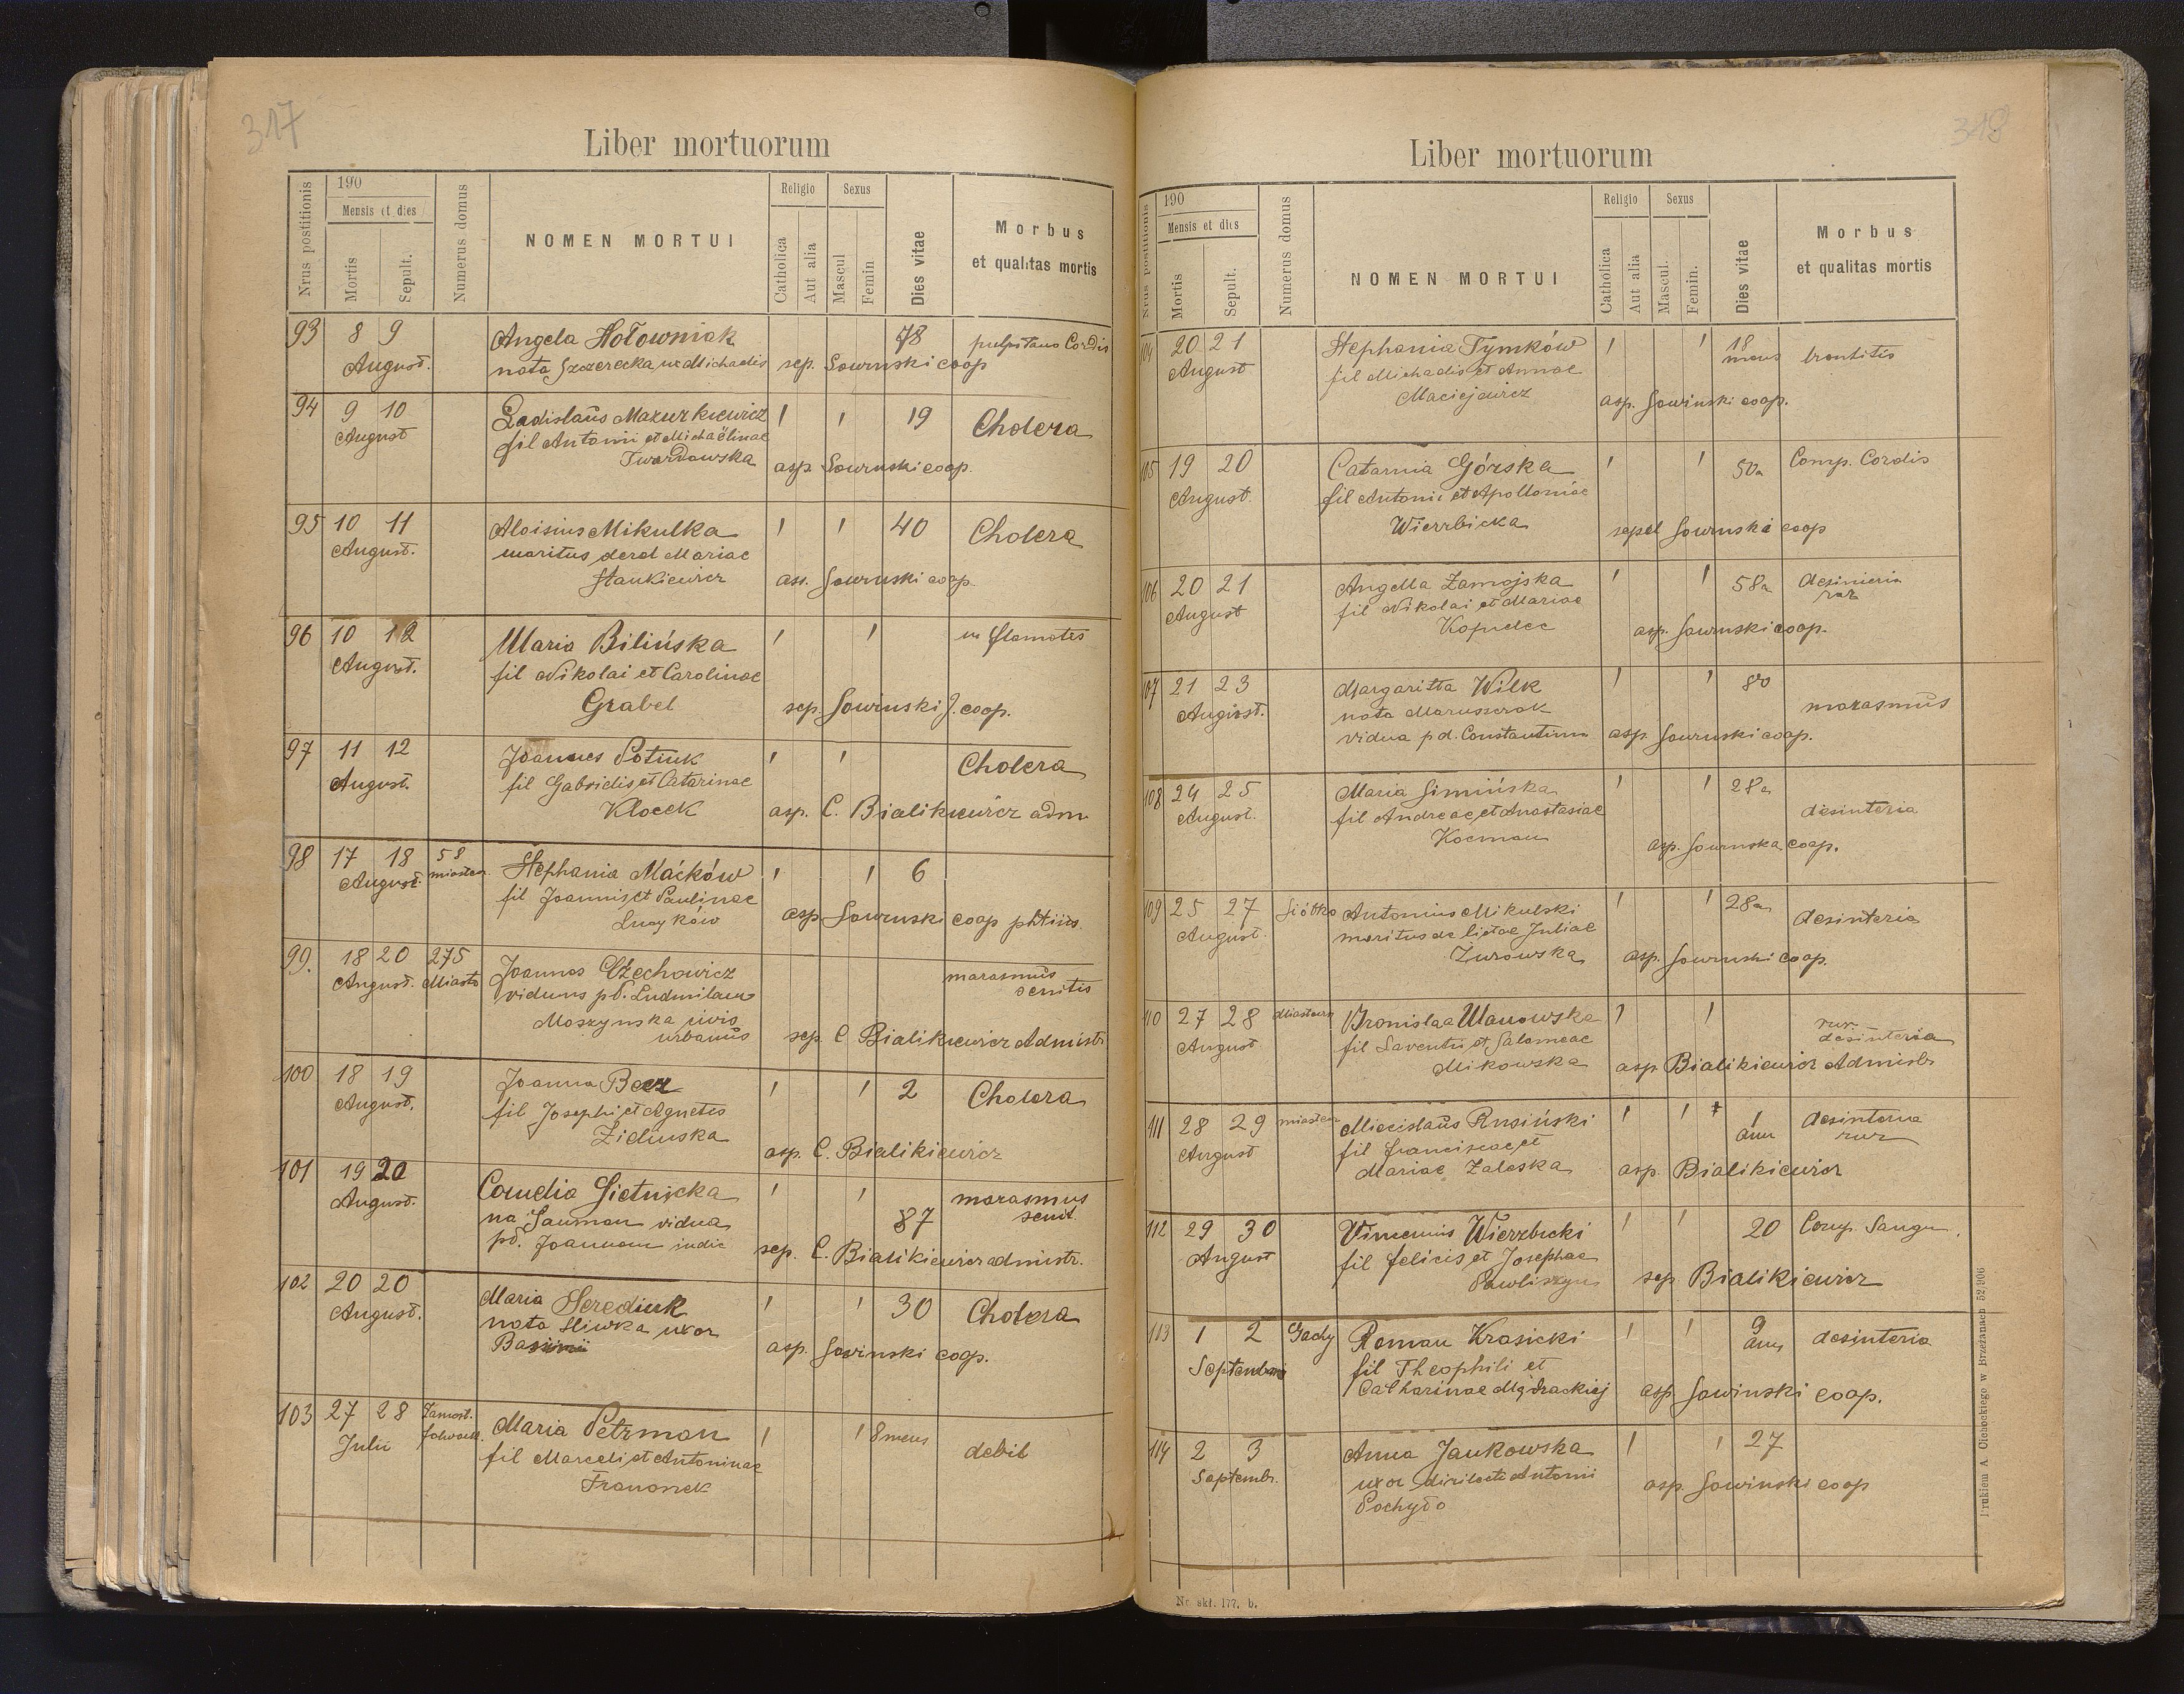 317
Liber mortuorum
Nrus postitionis
190
Mensis et dies
Mortis
Sepult.
Numerus domus
NOMEN MORTUI
Religio
Catholica
Aut alia
Sexus
Mascul
Femin
Dies vitae
Morbus
et qualitas mortis
93 8 9 Angela Hołowniak 78 Cordis
August. nata Szczerecka ux Michaelis sep. Sowinski coop
94 9 10 Ladislaus Mazurkiewicz 1 1 19 Cholera
August fil Antonii et Michaëlinae
Twardowska asp Sowinski coop.
95 10 11 Aloisius Mikulka 1 1 40 Cholera
August. maritus derel Mariae
Stankiewicz ass. Sowinski coop.
96 10 12 Maria Bilińska 1 1
August. fil Nikolai et Carolinae
Grabel sep. Sowinski J. coop.
97 11 12 Joannes Potiuk 1 1 Cholera
August. fil Gabrielis et Catarinae
Klocek asp. C. Bialikiewicz adm
98 17 18 58 Stephania Maćków 1 1 6
August. miasten fil Joannis et Paulinae
asp Sowinski coop phtisis
99. 18 20 275 Joannes Czechowicz marasmus
August. Miasto viduus pd. Ludmilam senitis
Moszynska civis
urbanus sep. C Bialikiewicz Administr
100 18 19 Joanna Becz 1 1 2 Cholera
August. fil Josephi et Agnetis
Zielinska asp. C. Bialikiewicz
101 19 20 Cornelia Sietnicka 1 1 marasmus
August. na Sauman vidua 87 senit.
pd. Joannem judic sep. C. Bialikiewicz administr.
102 20 20 Maria Serediuk 1 1 30 Cholera
August. nata Sliwka uxor
asp. Sowinski coop.
103 27 28 Zamost. Maria Petzman 1 1 8 mens debil
Julii folwark. fil Marceli et Antoninae
318
Liber mortuorum
Nrus postitionis
190
Mensis et dies
Mortis
Sepult.
Numerus domus
NOMEN MORTUI
Religio
Catholica
Aut alia
Sexus
Mascul.
Femin.
Dies vitae
Morbus
et qualitas mortis
104 20 21 Stephania Tymków 1 1 18 mens brontitis
August fil Michaelis et Annae
Maciejewicz asp. Sowinski coop.
105 19 20 Catarnia Górska 1 1 50a Comp. Cordis
August. fil Antonii et Apolloniae
Wierzbicka sepel Sowinski coop
106 20 21 Angella Zamojska 1 1 58a
August fil Nikolai et Mariae
asp. Sowinski coop.
107 21 23 Margaritta Wilk 1 1 80 marasmus
August. nata Maruszczak
vidua pd. Constantinum asp. Sowinski coop.
108 24 25 Maria Simińska 1 1 28a desinteria
August. fil Andreae et Anastasiae
Kocman asp. Sowinska coop.
109 25 27 Siółko Antonius Mikulski 1 1 28a desinteria
August. maritus de lictae Juliae
Zurowska asp. Sowinski coop.
110 27 28 Bronislaa Wanowska 1 1 rux
August fil Laventii et Salomeae desinteria
Mikowska asp Bialikiewicz Administr
111 28 29 miasten Miecislaus Rusiński 1 1 1 desinteria
August fil Franciscae et ann rux
Mariae Zaleska asp. Bialikiewicz
112 29 30 Vincenius Wierzbicki 1 1 20 Cong. Sangu
August fil felicis et Josephae
Pawliszyn sep Bialikiewicz
113 1 2 Gady Roman Krasicki 1 1 9 desinteria
Septembris fil Theophili et ann
Catharinae Mądrackiej asp. Sowinski coop.
114 2 3 Anna Jankowska 1 1 27
Septembr. uxor dirilecta Antonii
Pochyło asp. Sowinski coop
Nr. skł. 177. b.
Drukiem A. Olchockiego w Brzeżanach 52/906